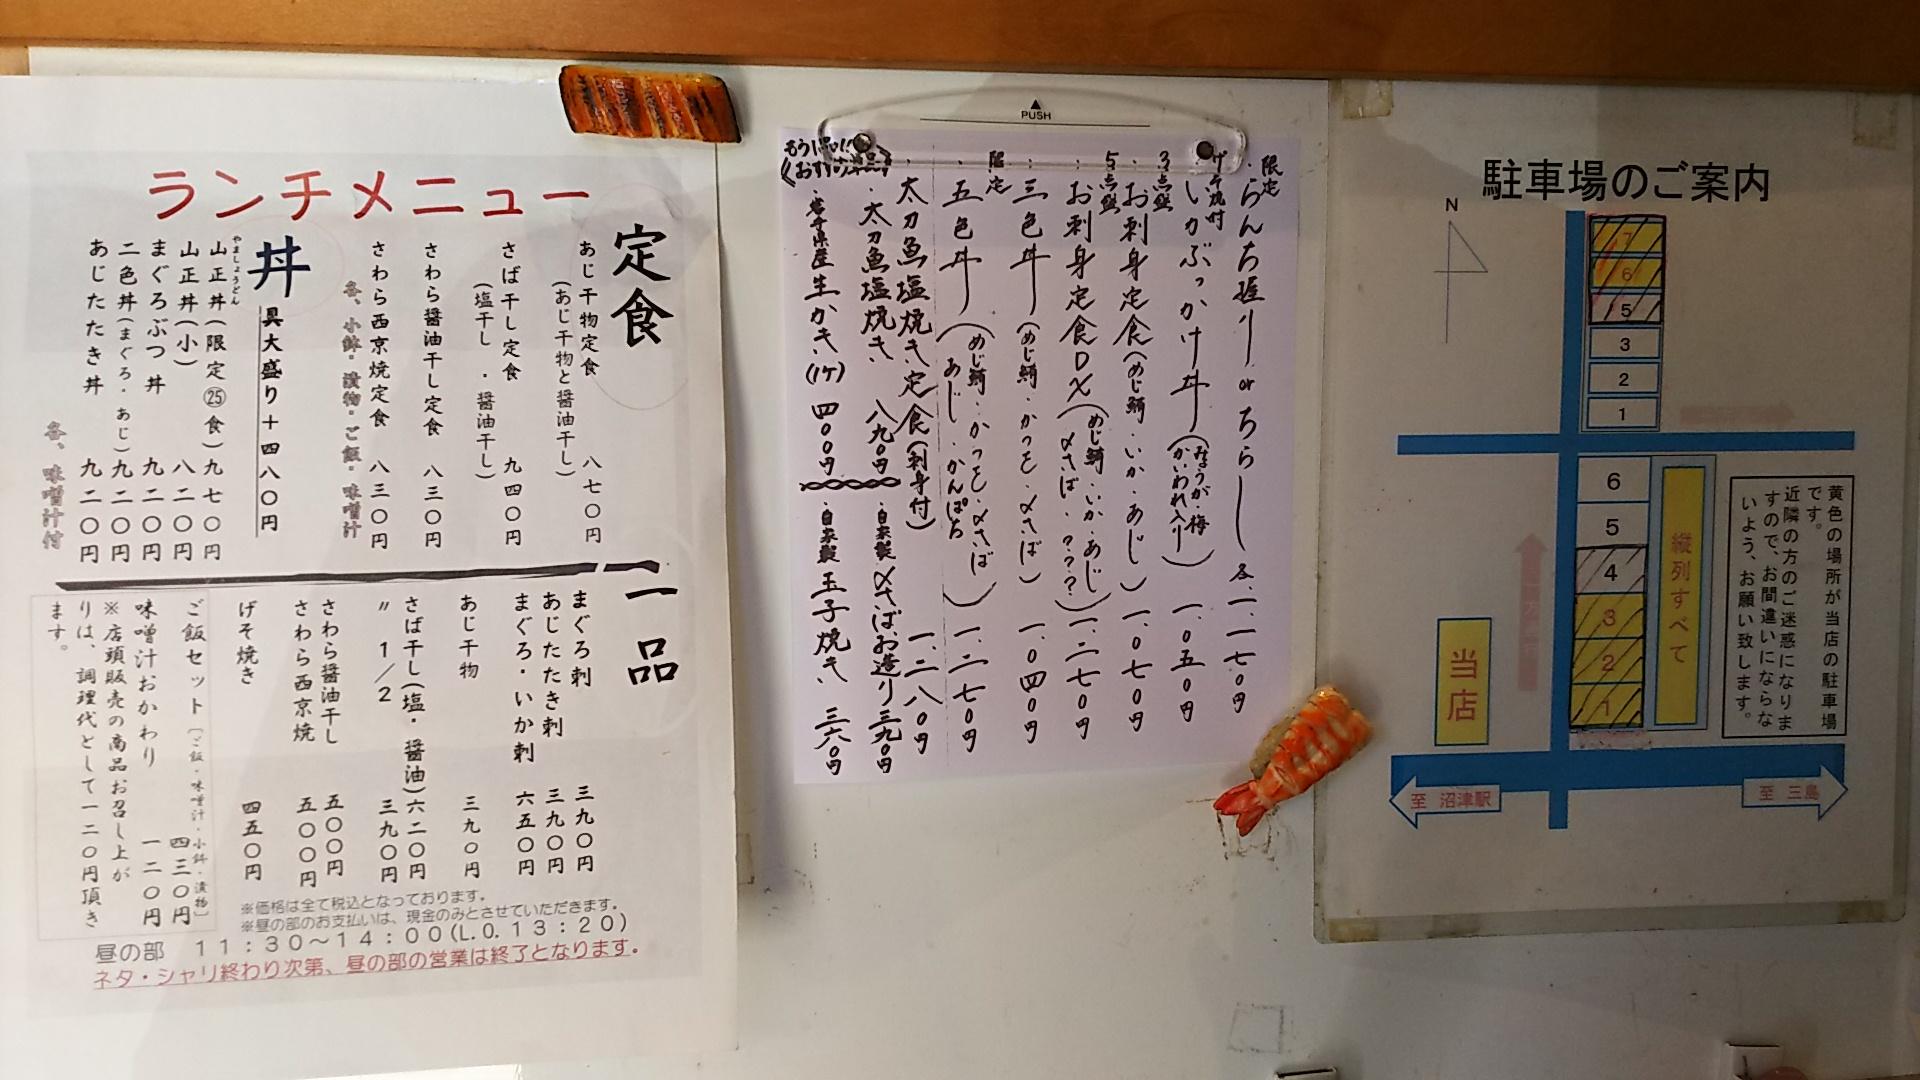 ランチメニュー
定食
あじ干物定食 八七〇円
(あじ干物と醤油干し)
さば干し定食 九四〇円
(塩干し・醤油干し)
さわら醤油干し定食 八三〇円
さわら西京焼定食 八三〇円
各、小鉢・漬物・ご飯・味噌汁
丼
具大盛り+四八〇円
やましょうどん
山正丼(限定㉕食) 九七〇円
山正丼(小) 八二〇円
まぐろぶつ丼 九二〇円
二色丼(まぐろ・あじ) 九二〇円
あじたたき丼 九二〇円
各、味噌汁付
一品
まぐろ刺 三九〇円
あじたたき刺 三九〇円
まぐろ・いか刺 六五〇円
あじ干物 三九〇円
さば干し(塩・醤油) 六二〇円
〃 1/2 三九〇円
さわら醤油干し 五〇〇円
さわら西京焼 五〇〇円
げそ焼き 四五〇円
ご飯セット〔ご飯・味噌汁・小鉢・漬物〕 四三〇円
味噌汁おかわり 一二〇円
※店頭販売の商品お召し上が
りは、調理代として一二〇円頂き
ます。
※価格は全て税込となっております。
※昼の部のお支払いは、現金のみとさせていただきます。
昼の部 11:30〜14:00(L.O.13:20)
ネタ・シャリ終わり次第、昼の部の営業は終了となります。
PUSH
限定
・らんち握り or ちらし 各一.一七〇円
・いかぶっかけ丼(みょうが・梅
かいわれ入り) 一.〇五〇円
3点盛
・お刺身定食(めじ鮪・いか・あじ) 一.〇七〇円
5点盛
・お刺身定食DX(めじ鮪・いか・あじ
〆さば・???) 一.二七〇円
・三色丼(めじ鮪・かつを・〆さば) 一.〇四〇円
限定
・五色丼(めじ鮪・かつを・〆さば
あじ・かんぱち) 一.二七〇円
・太刀魚塩焼き定食(刺身付) 一.二八〇円
もう1品!!
《おすすめ単品》
・太刀魚塩焼き 八九〇円
・岩手県産生かき(1ケ) 四〇〇円
・自家製〆さばお造り 三九〇円
・自家製玉子焼き 三六〇円
駐車場のご案内
N
7
6
5
3
2
1
6
5
4
3
2
1
縦列すべて
黄色の場所が当店の駐車場
です。
近隣の方のご迷惑になりま
すので、お間違いにならな
いよう、お願い致します。
当店
至 沼津駅
至 三島